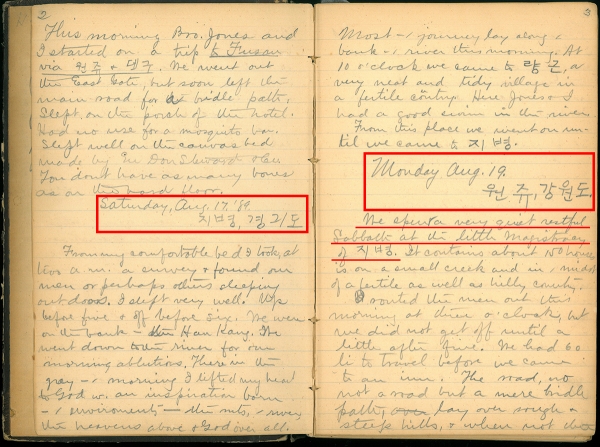 2
This morning Bro. Jones and
I started on a trip to Fusan
via 원주 & 대구. We went out
the East Gate, but soon left the
main road for a bridle path.
Slept on the porch of the hotel.
Had no use for a mosquito bar.
Slept well on the canvas bed
made by
You dont have as many bones
as on the hard floor.
Saturday, Aug. 17, '89
지병, 경긔도
From my comfortable bed I look, at
two a.m. a survey & found, our
men or perhaps others sleeping
out doors. I slept very well. Up
before five & off before six. We were
on the bank the Han Kang. We
went down to the river for our
morning ablutions. There in the
gray morning I lifted my heart
to God w. an inspiration born
environments the mts, river
the heavens above & God over all.
3
Most journey lay along
bank river this morning. At
10 o'clock we came to 량근, a
very neat and tidy village in
a fertile country. Here Jones & I
had a good swim in the river.
From this place we went on un-
til we came to 지병.
Monday Aug. 19.
원주, 강원도.
We spent a very quiet restful
Sabbath at the little Magistracy
of 지병. It contains about 150 houses
is on a small creek and in midst
of a fertile as well as hilly country.
I routed the men out this
morning at three o'clock, but
we did not get off until a
little after five. We had 60
li to travel before we came
to an inn. The road, no
not a road but a mere bridle
path, lay over rough &
steep hills, & when not